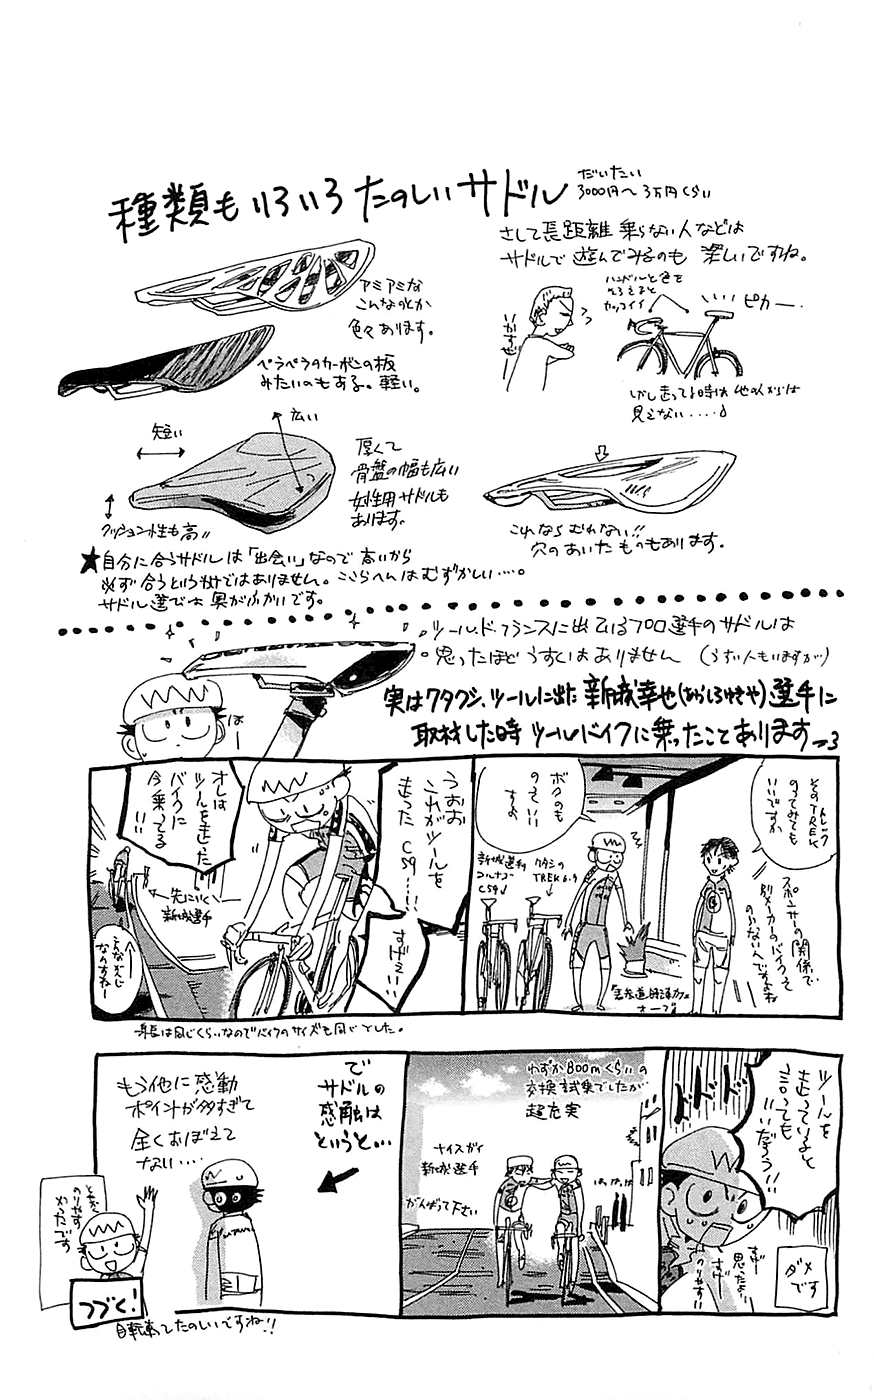 種類もいろいろたのしいサドル
だいたい
3000円〜3万円くらい
アミアミな
こんなのとか
色々あります。
ペラペラのカーボンの板
みたいのもある。軽い。
さして長距離乗らない人などは
サドルで遊んでみるのも楽しいですね。
ハンドルと色を
そろえると
カッコイイ
ピカー
いかすぜ
しかし走ってる時は他の人からは
見えない....
短い
広い
クッション性も高
厚くて
骨盤の幅も広い
女性用サドルも
あります。
これならむれない!!
穴のあいたものもあります。
★自分に合うサドルは「出会い」なので高いから
必ず合うというわけではありません。ここらへんはむずかしい....。
サドル選びは奥がふかいです。
ツール・ド・フランスに出ているプロ選手のサドルは
思ったほどうすくはありません(うすい人もいますが)
は
実はワタクシ、ツールに出た新城幸也(あらしろゆきや)選手に
取材した時ツールバイクに乗ったことあります
そのTREK
トレック
のってみても
いいですか
スポンサーの関係で
別メーカーのバイクって
のらないんですよね
ボクのも
のっていい
すよ
新城選手
コルナゴ
C59
ワタシの
TREK6.9
うぉお
これがツールを
走ったC59...!!
すげえ!!
オレは
ツールを走った
バイクに
今乗ってる
!!
先にいく
新城選手
こんなかんじ
なのすねー
身長は同じくらいなのでバイクのサイズも同じでした。
ツールを
走っていると
言っても
いいだろう!!
ドドドド
すげー
思ったよ
すげー
のりやすい
ダメ
です
わずか800mくらいの
交換試乗でしたが
超充実
ナイスガイ
新城選手
がんばって下さい
はっはっは
で
サドルの
感触は
というと...
もう他に感動
ポイントが多すぎて
全くおぼえて
ない....
とにかく
のりやす
かったです
つづく!
自転車ってたのしいですね!!